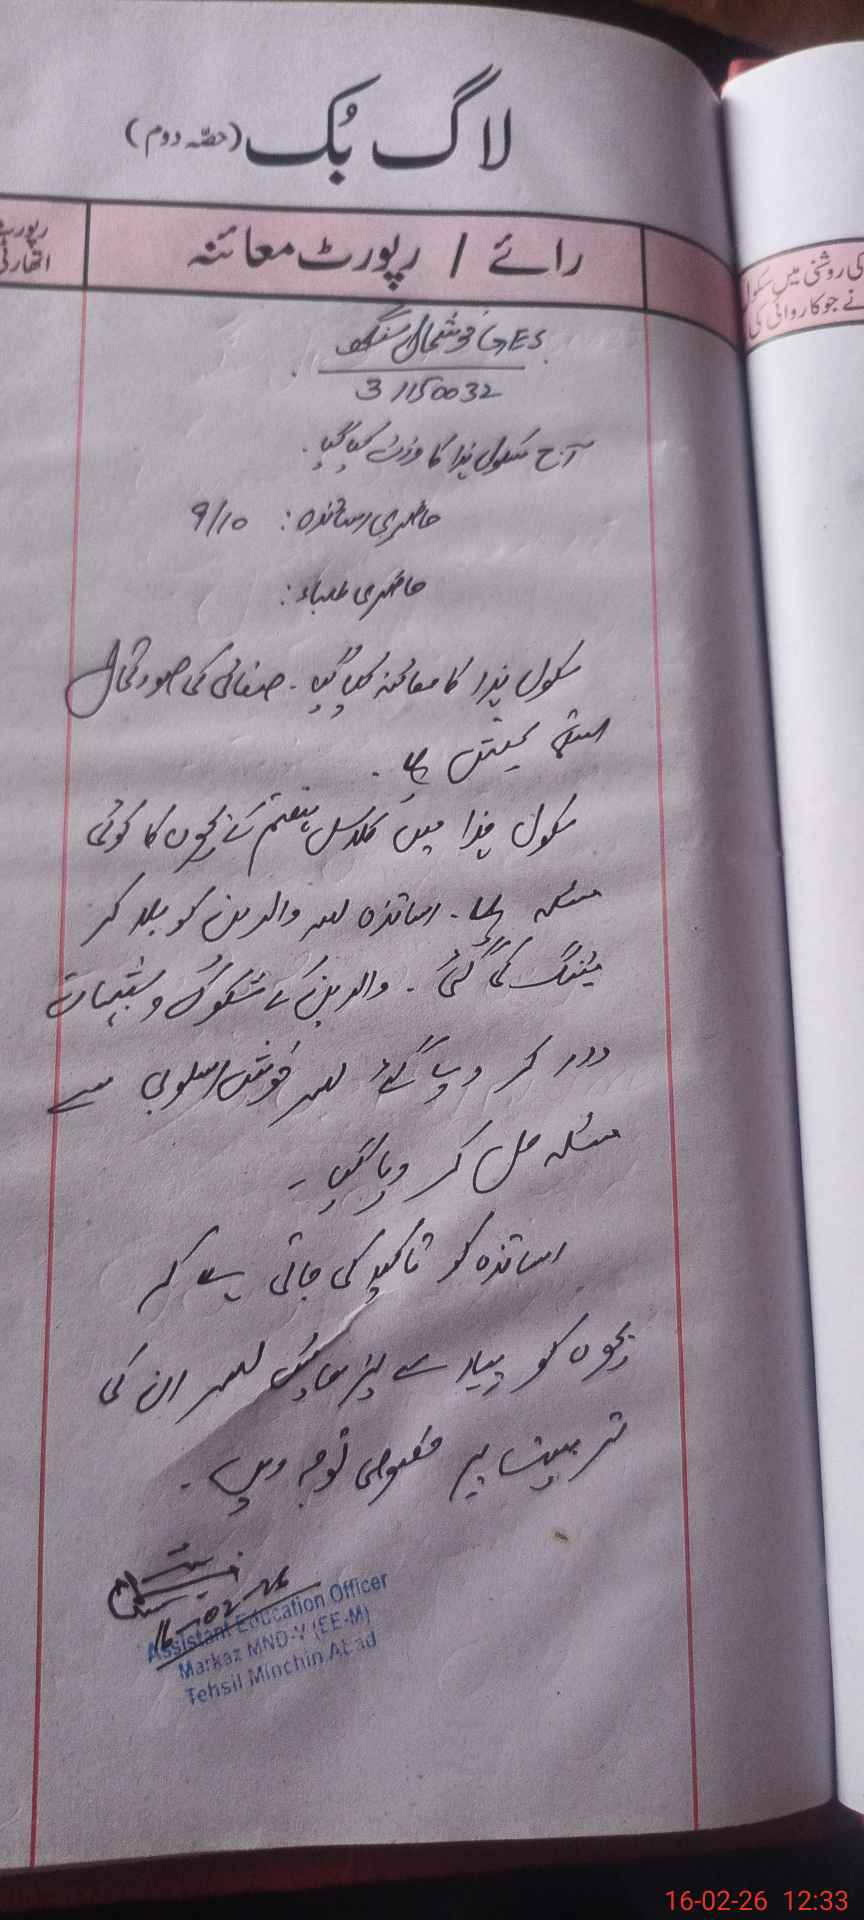 لاگ بُک (حصّہ دوم)
رائے / رپورٹ معائنہ
رپورٹ
اتھارٹی
کی روشنی میں سکول
نے جو کاروائی کی
GES خوشحال سنگھ
31150032
آج سکول ہذا کا وزٹ کیا گیا۔
حاضری اساتذہ: 9/10
حاضری طلباء:
سکول ہذا کا معائنہ کیا گیا۔ صفائی کی صورتحال
تسلی بخش ہے۔
سکول ہذا میں کلاس ہفتم کے بچوں کا کوئی
مسئلہ تھا۔ اساتذہ اور والدین کو بلا کر
میٹنگ کی گئی۔ والدین کے شکوک و شبہات
دور کر دیا گئے اور خوش اسلوبی سے
مسئلہ حل کر دیا گیا۔
اساتذہ کو تاکید کی جاتی ہے کہ
بچوں کو پیار سے پڑھائیں اور ان کی
تربیت پر خصوصی توجہ دیں۔
16-02-26
Assistant Education Officer
Markaz MND-V (EE-M)
Tehsil Minchin Abad
16-02-26 12:33